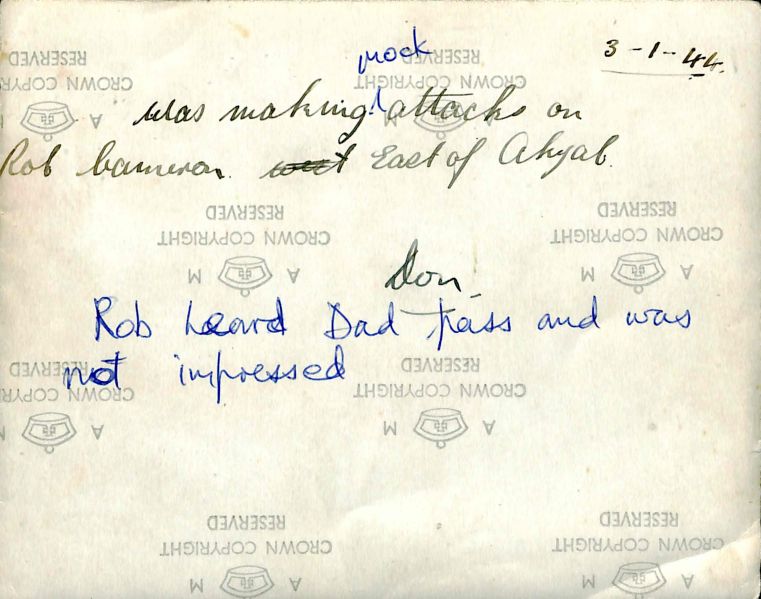 3-1-44.
mock
was making attacks on
Rob Cameron west East of Akyab.
Don
Rob heard Dad pass and was
not impressed
A M
CROWN COPYRIGHT
RESERVED
A M
CROWN COPYRIGHT
RESERVED
A M
CROWN COPYRIGHT
RESERVED
A M
CROWN COPYRIGHT
RESERVED
A
CROWN COPYRIGHT
RESERVED
A M
CROWN COPYRIGHT
RESERVED
A M
CROWN COPYRIGHT
RESERVED
A M
CROWN COPYRIGHT
RESERVED